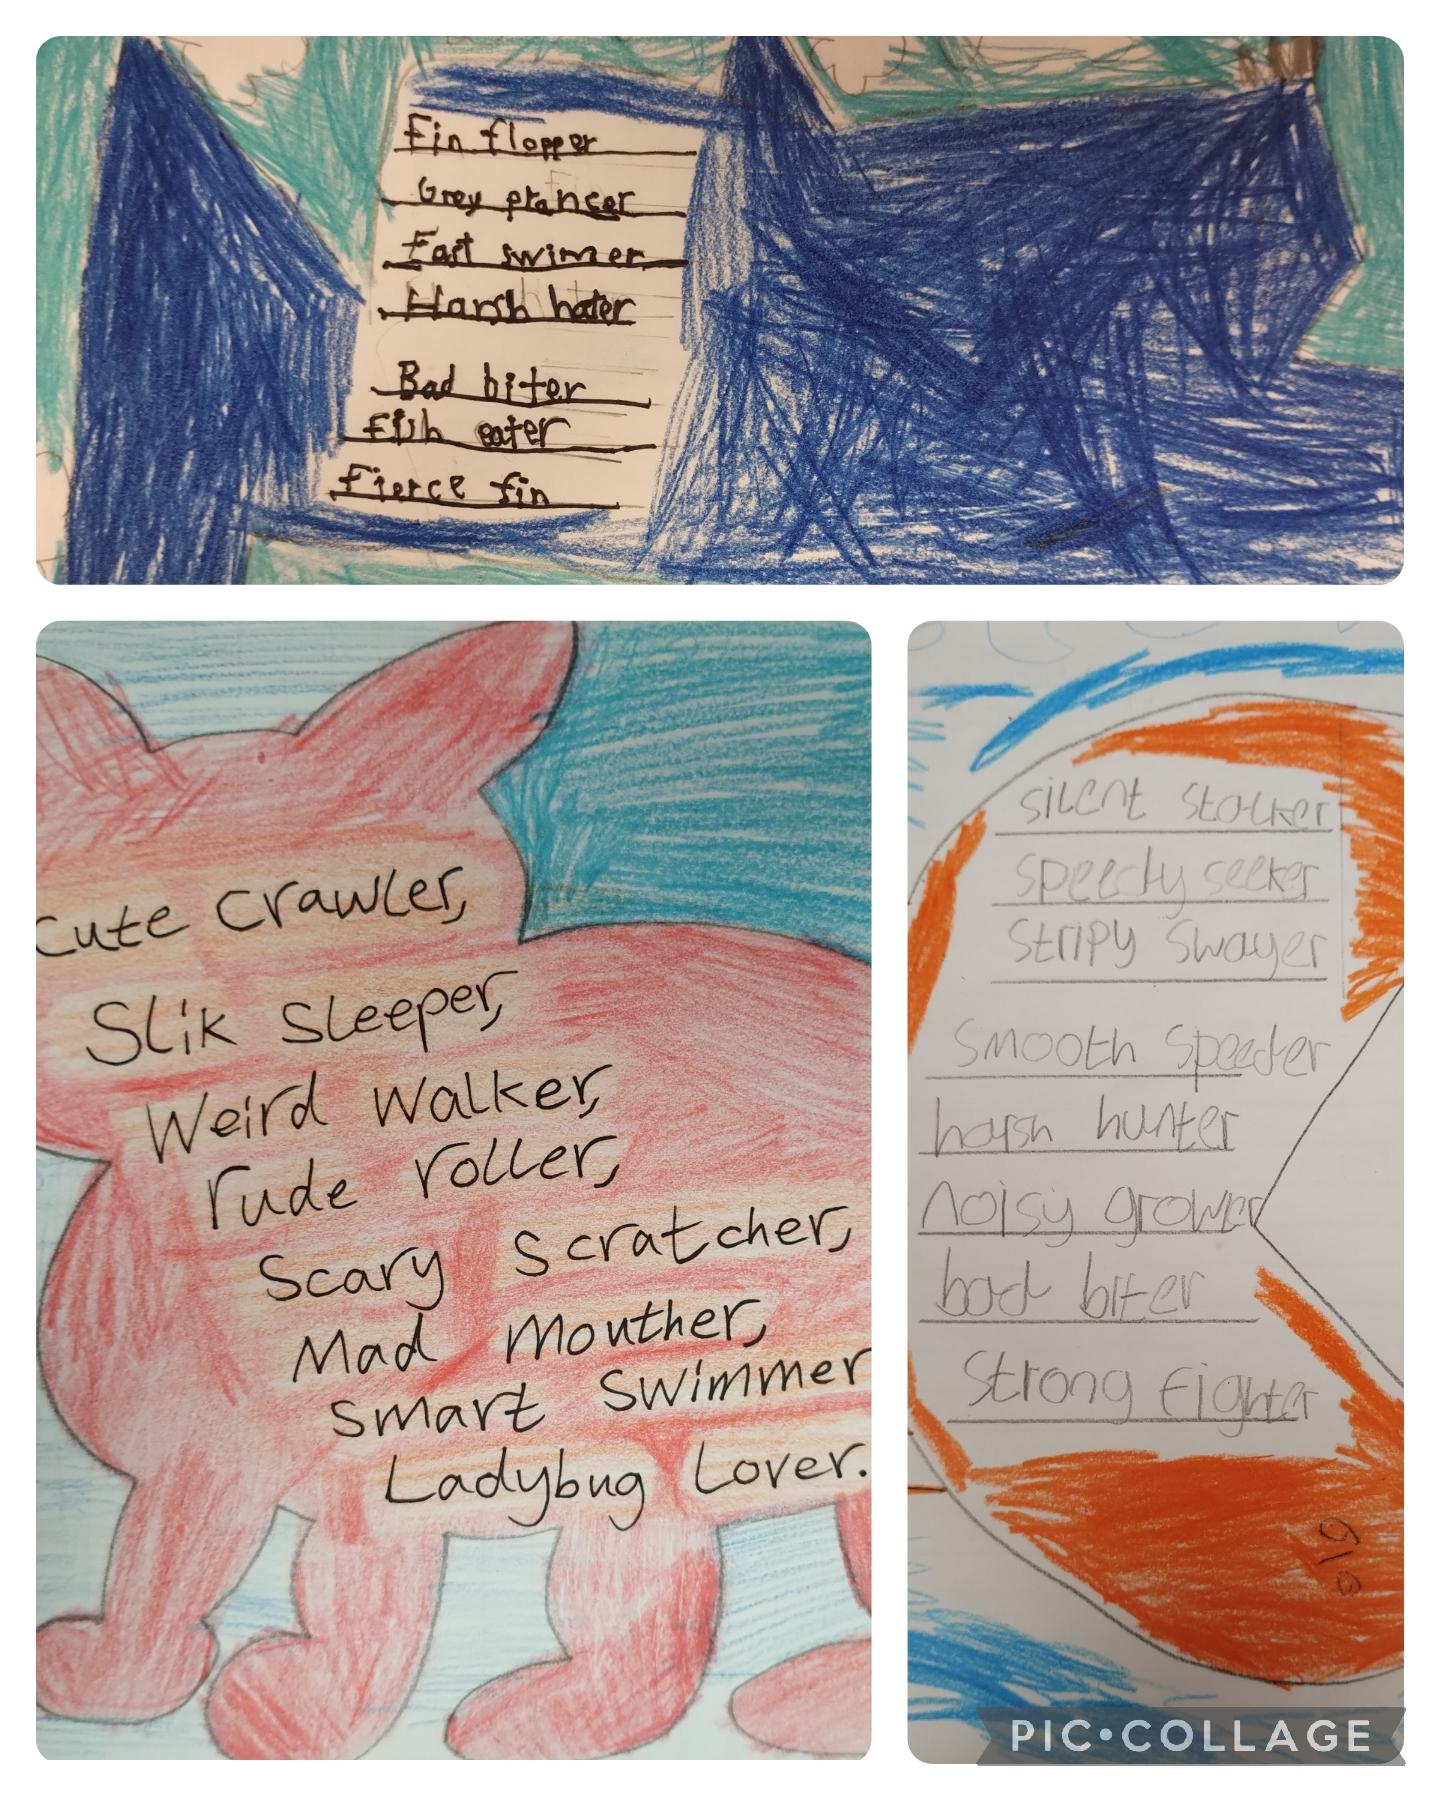 Fin flopper
Grey prancer
Fast swimer
Harsh hater
Bad biter
Fish eater
Fierce fin
Cute Crawler,
Slik Sleeper,
Weird Walker,
rude roller,
Scary Scratcher,
Mad Mouther,
Smart Swimmer
Ladybug Lover.
silent stalker
speedy seeker
stripy swayer
smooth speeder
harsh hunter
noisy grower
bad biter
Strong fighter
PIC•COLLAGE